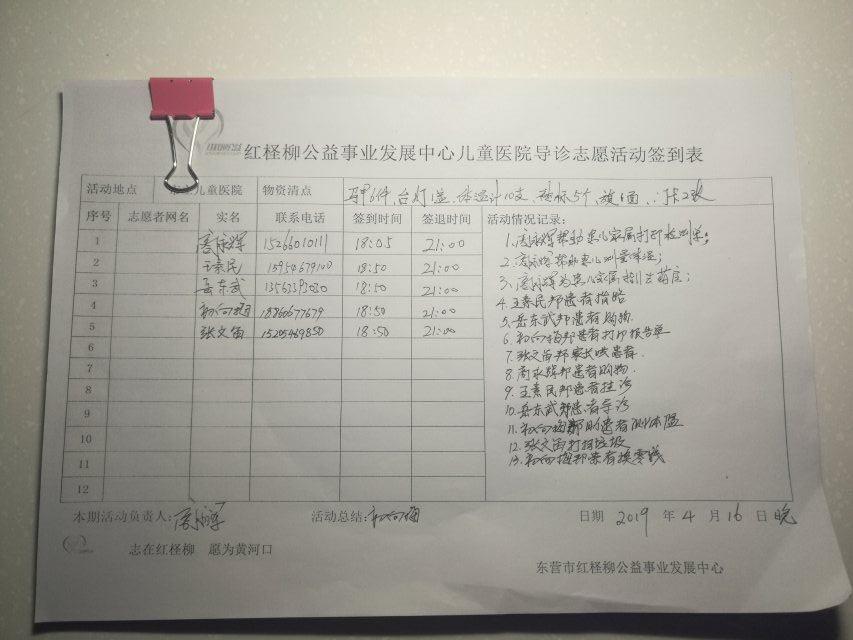 红柽柳公益事业发展中心儿童医院导诊志愿活动签到表
活动地点 儿童医院 物资清点 马甲6件,台灯1盏,体温计10支,袖标5个,旗1面,
序号 志愿者网名 实名 联系电话 签到时间 签退时间 活动情况记录:
1 周咏辉 15266010111 18:05 21:00
2 王素民 15954679100 18:50 21:00
3 岳东武 18:50 21:00
4 初向梅 18860677679 18:50 21:00
5 张文笛 18:50 21:00
6
7
8
9
10
11
12
1.周咏辉帮助患儿家属打印检测单;
2.周咏辉帮助患儿测量体温;
3.周咏辉为患儿家属指引去药店;
4.王素民帮患者指路
5.岳东武帮患者购物.
6.初向梅帮患者打印报告单
7.张文笛帮家长哄患者.
8.周咏辉帮患者购物.
9.王素民帮患者挂号
10.岳东武帮患者导诊
11.初向梅帮助患者测体温
12.张文笛打扫垃圾
13.初向梅帮患者换零钱
本期活动负责人:周咏辉 活动总结:初向梅 日期 2019 年 4 月 16 日 晚
志在红柽柳 愿为黄河口
东营市红柽柳公益事业发展中心